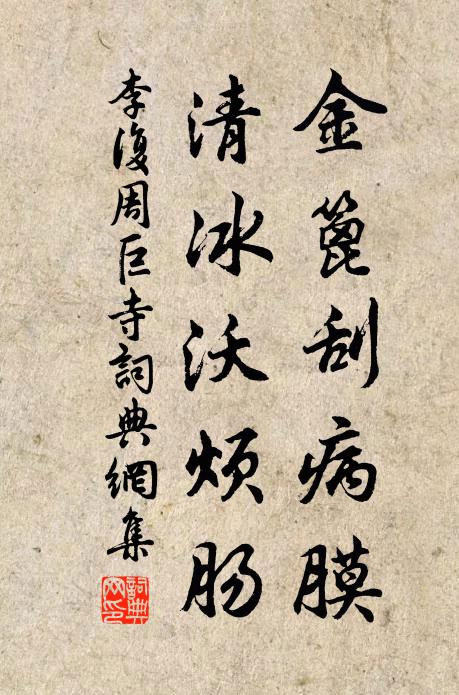 金篦刮病膜
清冰沃烦肠
李復周巨寺詞典網集
詞典网印